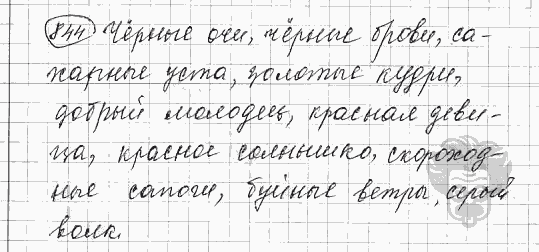 844 Чёрные очи, чёрные брови, са-
харные уста, золотые кудри,
добрый молодец, красная деви-
ца, красное солнышко, скороход-
ные сапоги, буйные ветры, серый
волк.